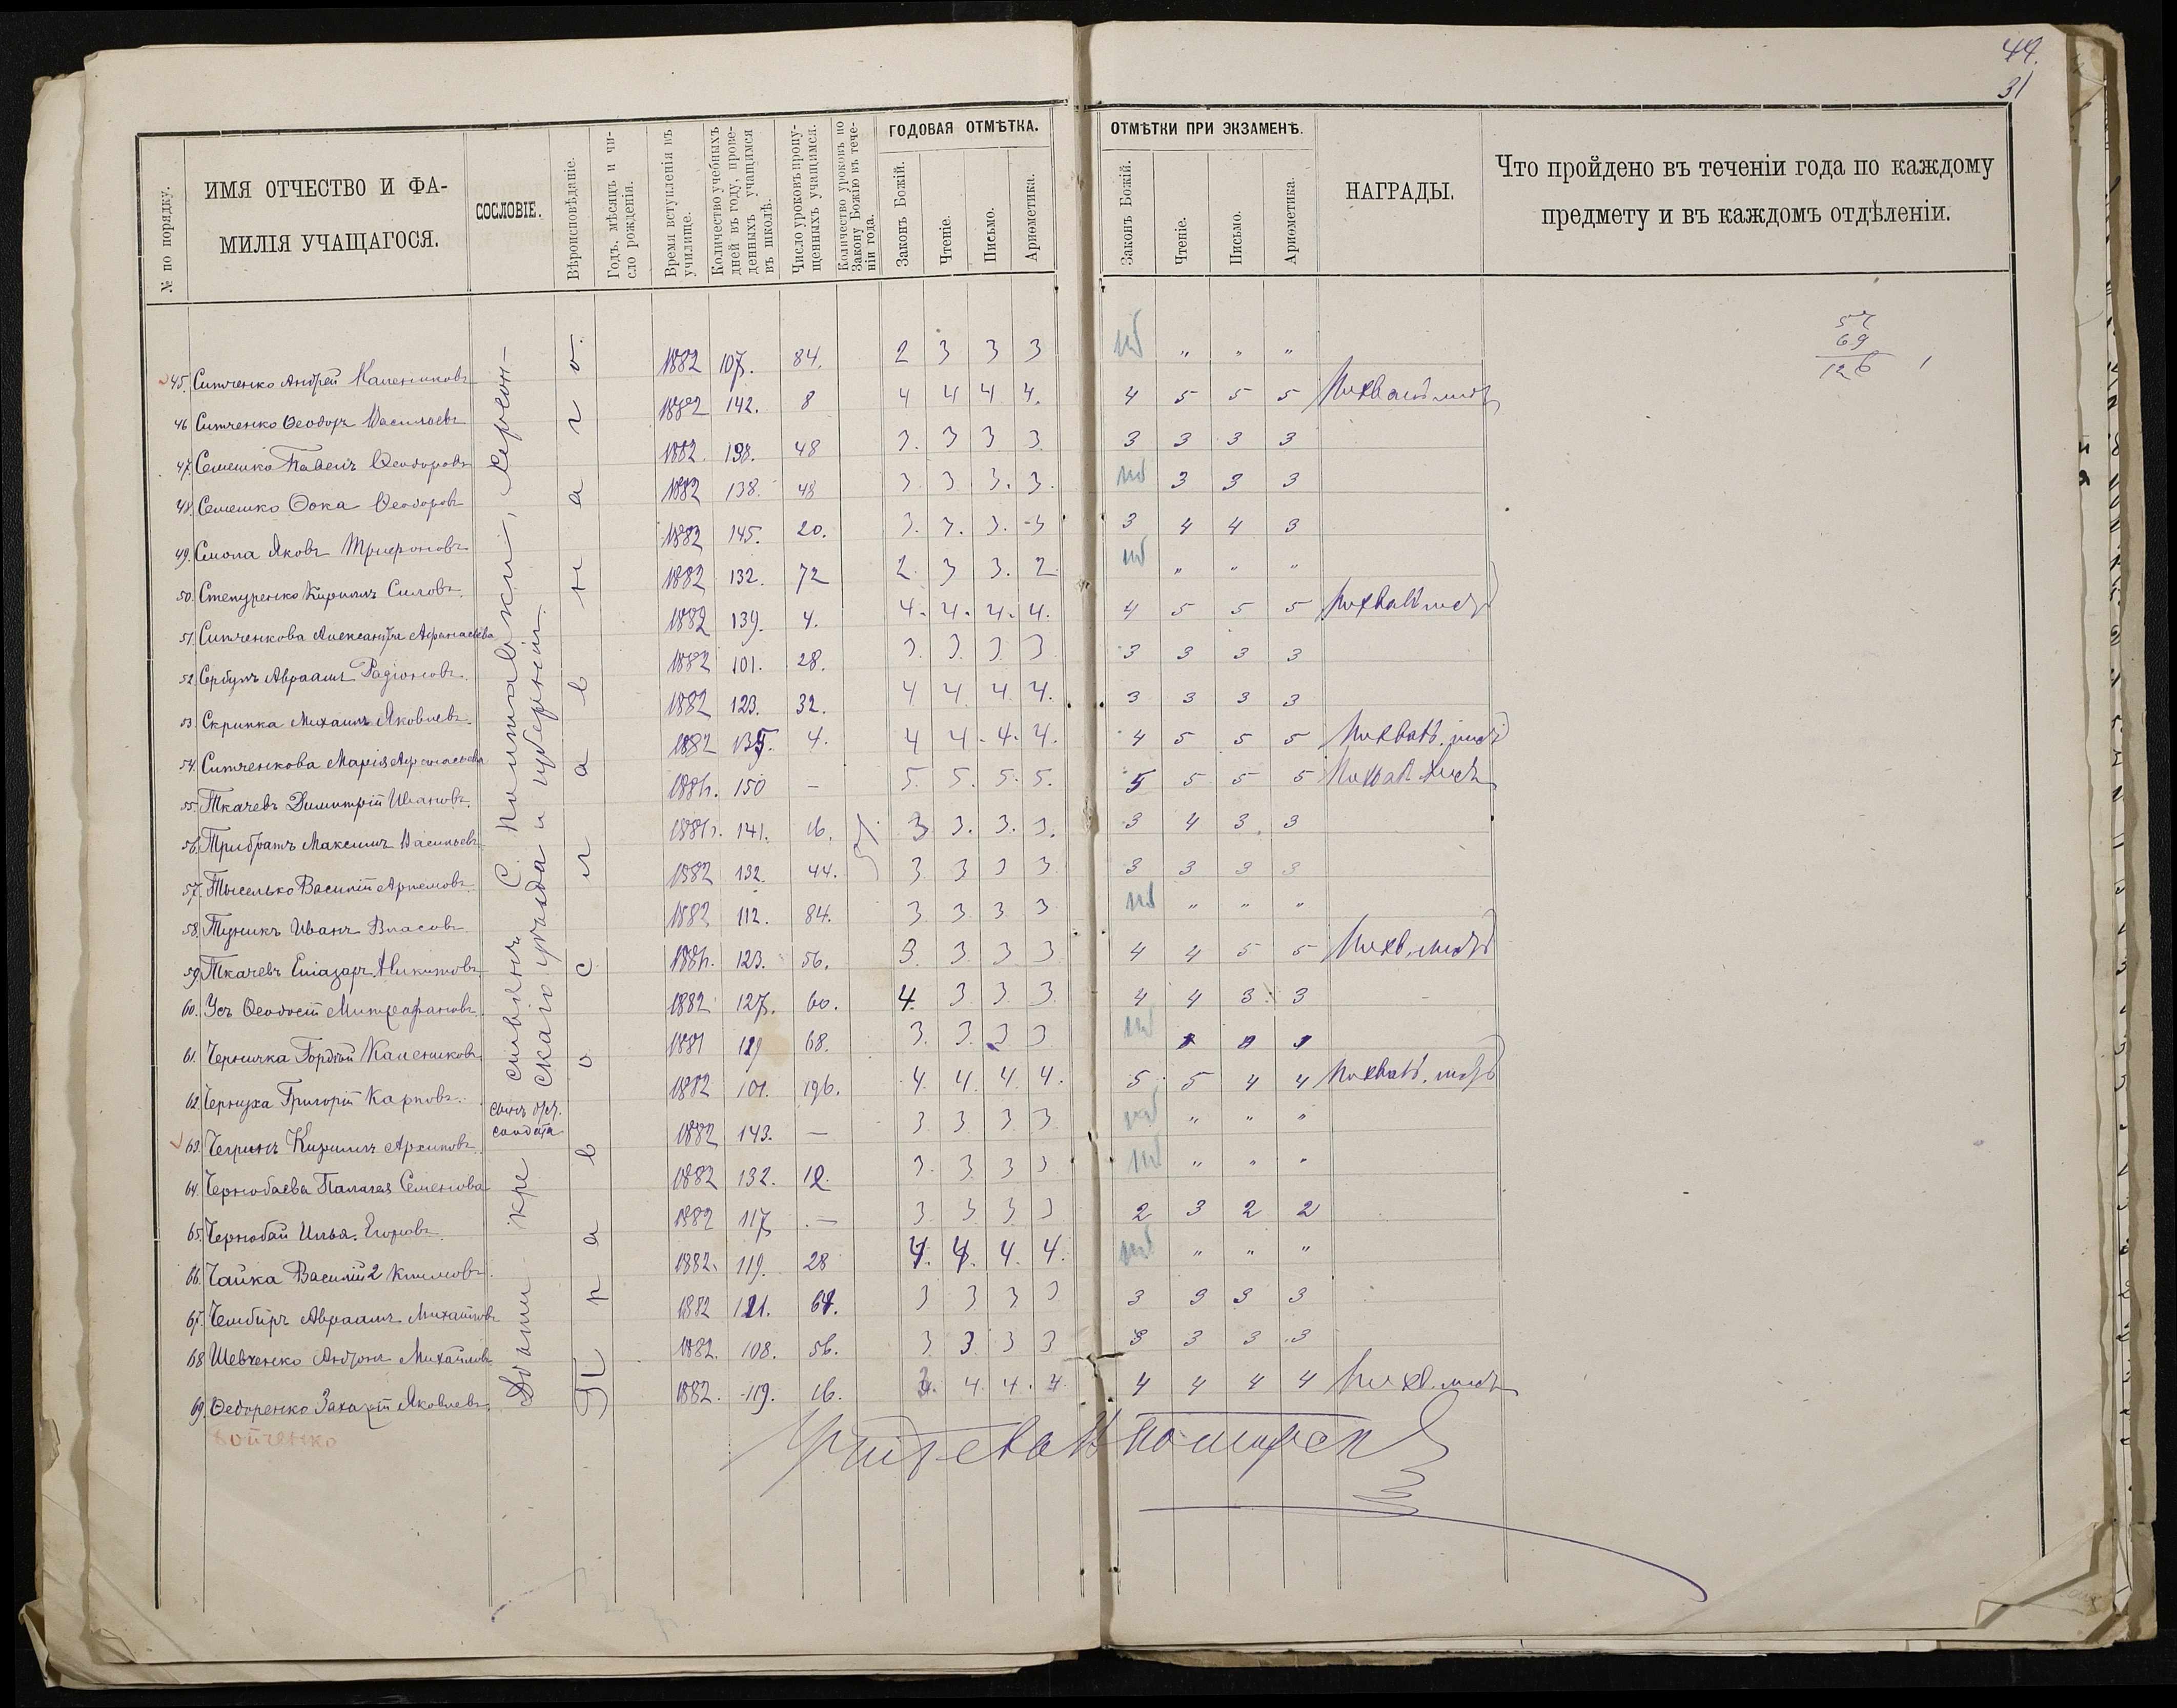 44.
31
№ по порядку.
ИМЯ ОТЧЕСТВО И ФА-
МИЛІЯ УЧАЩАГОСЯ.
СОСЛОВІЕ.
Вѣроисповѣданіе.
Годъ, мѣсяцъ и чи-
сло рожденія.
Время вступленія въ
училище.
Количество учебныхъ
дней въ году, прове-
денныхъ учащимся
въ школѣ.
Число уроковъ пропу-
щенныхъ учащимся.
Количество уроковъ по
Закону Божію въ тече-
ніи года.
ГОДОВАЯ ОТМѢТКА.
Законъ Божій.
Чтеніе.
Письмо.
Ариѳметика.
ОТМѢТКИ ПРИ ЭКЗАМЕНѢ.
Законъ Божій.
Чтеніе.
Письмо.
Ариѳметика.
НАГРАДЫ.
Что пройдено въ теченіи года по каждому
предмету и въ каждомъ отдѣленіи.
57
69
126
Дѣти крестьянъ С. Полтавки, Херсон-
скаго уѣзда и губерніи.
Православнаго.
45. Ситченко Андрей Калениковъ 1882 107. 84. 2 3 3 3 нб " " "
46 Ситченко Ѳеодоръ Васильевъ 1882 142. 8 4 4 4 4. 4 5 5 5 Похвал. листъ
47. Семешко Павелъ Ѳеодоровъ 1882. 138. 48 3. 3 3 3 3 3 3 3
48. Семешко Ѳока Ѳеодоровъ 1882 138. 48 3. 3 3. 3. нб 3 3 3
49. Смола Яковъ Трифоновъ 1882 145. 20. 3. 3. 3. 3 3 4 4 3
50. Степуренко Кириллъ Силовъ. 1882 132. 72 2. 3 3. 2 нб " " "
51. Ситченкова Александра Афанасьева 1882 139. 4. 4. 4. 4. 4. 4 5 5 5 Похвал. листъ
52 Сербулъ Авраамъ Радіоновъ. 1882 101. 28. 3. 3. 3. 3 3 3 3 3
53. Скрипка Михаилъ Яковлевъ. 1882 123. 32. 4 4 4. 4. 3 3 3 3
54. Ситченкова Марія Афанасьева 1882 135. 4. 4 4. 4. 4. 4 5 5 5 Похвал. листъ
55. Ткачевъ Димитрій Ивановъ. 1881 г. 150 — 5. 5. 5. 5. 5 5 5 5 Похвал. листъ
56. Трибратъ Максимъ Васильевъ. 1881 г. 141. 16. 3 3. 3. 3. 3 4 3. 3
57. Тыселько Василій Артемовъ. 1882 132. 44. 3 3 3 3 3 3 3 3
58. Туникъ Иванъ Власовъ 1882 112. 84. 3 3. 3 3 нб " " "
59. Ткачевъ Елазаръ Никитовъ. 1881 г. 123. 56. 3 3. 3 3 4 4 5 5 Похв. листъ
60. Усъ Ѳеодосій Митрофановъ. 1882 127. 60. 4. 3 3 3. 4 4 3 3
61. Черничка Гордѣй Калениковъ 1881 129 68. 3. 3. 3 3 нб " " "
62. Чернуха Григорій Карповъ. 1882 101. 196. 4. 4. 4. 4. 5 5 4 4 Похвал. листъ
63. Чегринъ Кириллъ Архиповъ сынъ отст. солдата 1882 143. — 3 3 3 3 нб " " "
64. Чернобаева Палагея Семенова 1882 132. 12. 3. 3 3 3 нб " " "
65. Чернобай Илья Егоровъ. 1882 117 — 3 3 3 3 2 3 2 2
66. Чайка Василій 2 Климовъ. 1882. 119. 28 4. 4. 4. 4. нб " " "
67. Чембиръ Авраамъ Михайловъ 1882 121. 64. 3 3 3 3 3 3 3 3
68 Шевченко Антонъ Михайловъ 1882. 108. 56. 3 3 3 3 3 3 3 3
69. Ѳедоренко Захарій Яковлевъ. 1882. 119. 16. 3. 4. 4. 4 4 4 4 4 Похв. листъ
Войченко